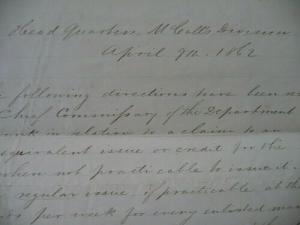 Head Quarters, McCall's Division
April 9th. 1862
following directions have been
Chief Commissary of the Department
in relation to a claim to an
equivalent issue or credit for the
when not practicable to issue it.
regular issue, if practicable at the
per week for every enlisted man